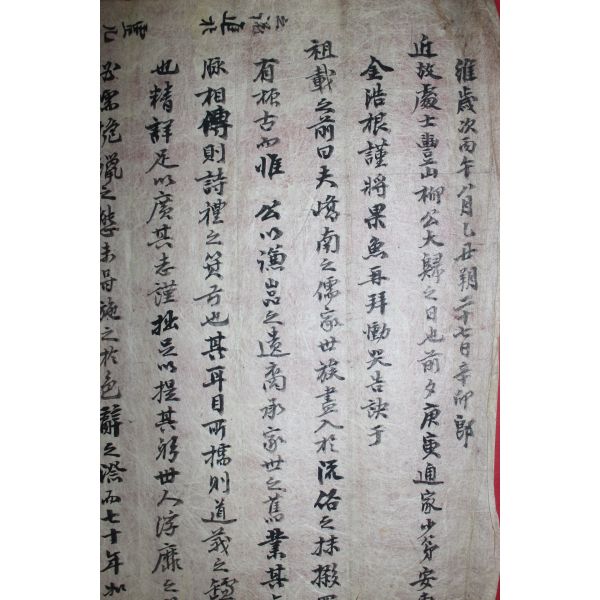 維歲次丙午八月乙丑朔二十七日辛卯郎
近故處士豊山柳公大歸之日也前夕庚寅通家少弟安
金浩根謹將果魚再拜慟哭告訣于
祖載之前曰夫嶠南之儒家世族盡入於流俗之抹摋
有振古而惟 公以謙嵓之遺裔承家世之舊業其
脉相傳則詩禮之箕弓也其耳目所擩則道義之鑪
也精詳足以廣其志謹拙足以提其躬世人浮靡之
之態未嘗施之於色辭之際而七十年如